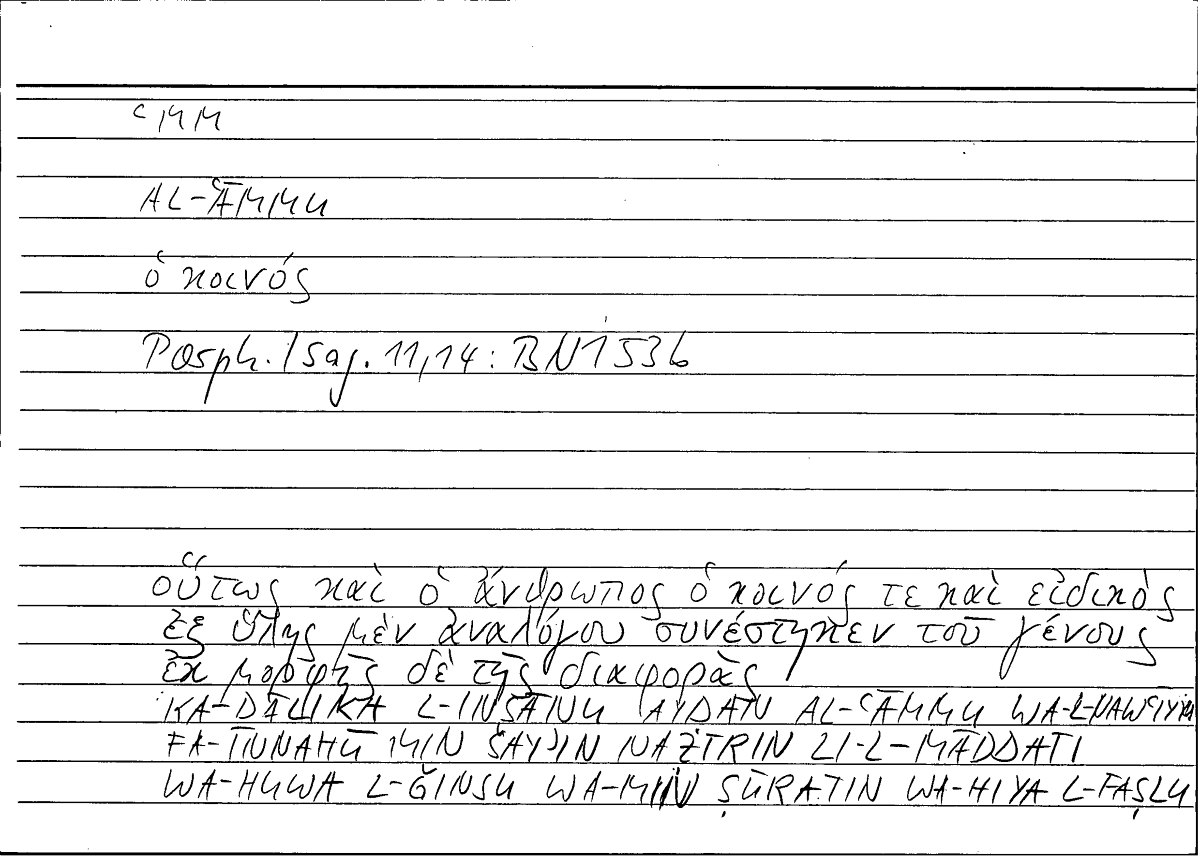 ʿMM
AL-ʿĀMMU
ὁ κοινός
Porph. Isag. 11,14: BN 153b
οὕτως καὶ ὁ ἄνθρωπος ὁ κοινός τε καὶ εἰδικὸς
ἐξ ὕλης μὲν ἀναλόγου συνέστηκεν τοῦ γένους
ἐκ μορφῆς δὲ τῆς διαφορᾶς
KA-ḎĀLIKA L-INSĀNU AYḌAN AL-ʿĀMMU WA-L-NAWʿIYYU
FA-INNAHŪ MIN ŠAYʾIN NAẒĪRIN LI-L-MĀDDATI
WA-HUWA L-ǦINSU WA-MIN ṢŪRATIN WA-HIYA L-FAṢLU